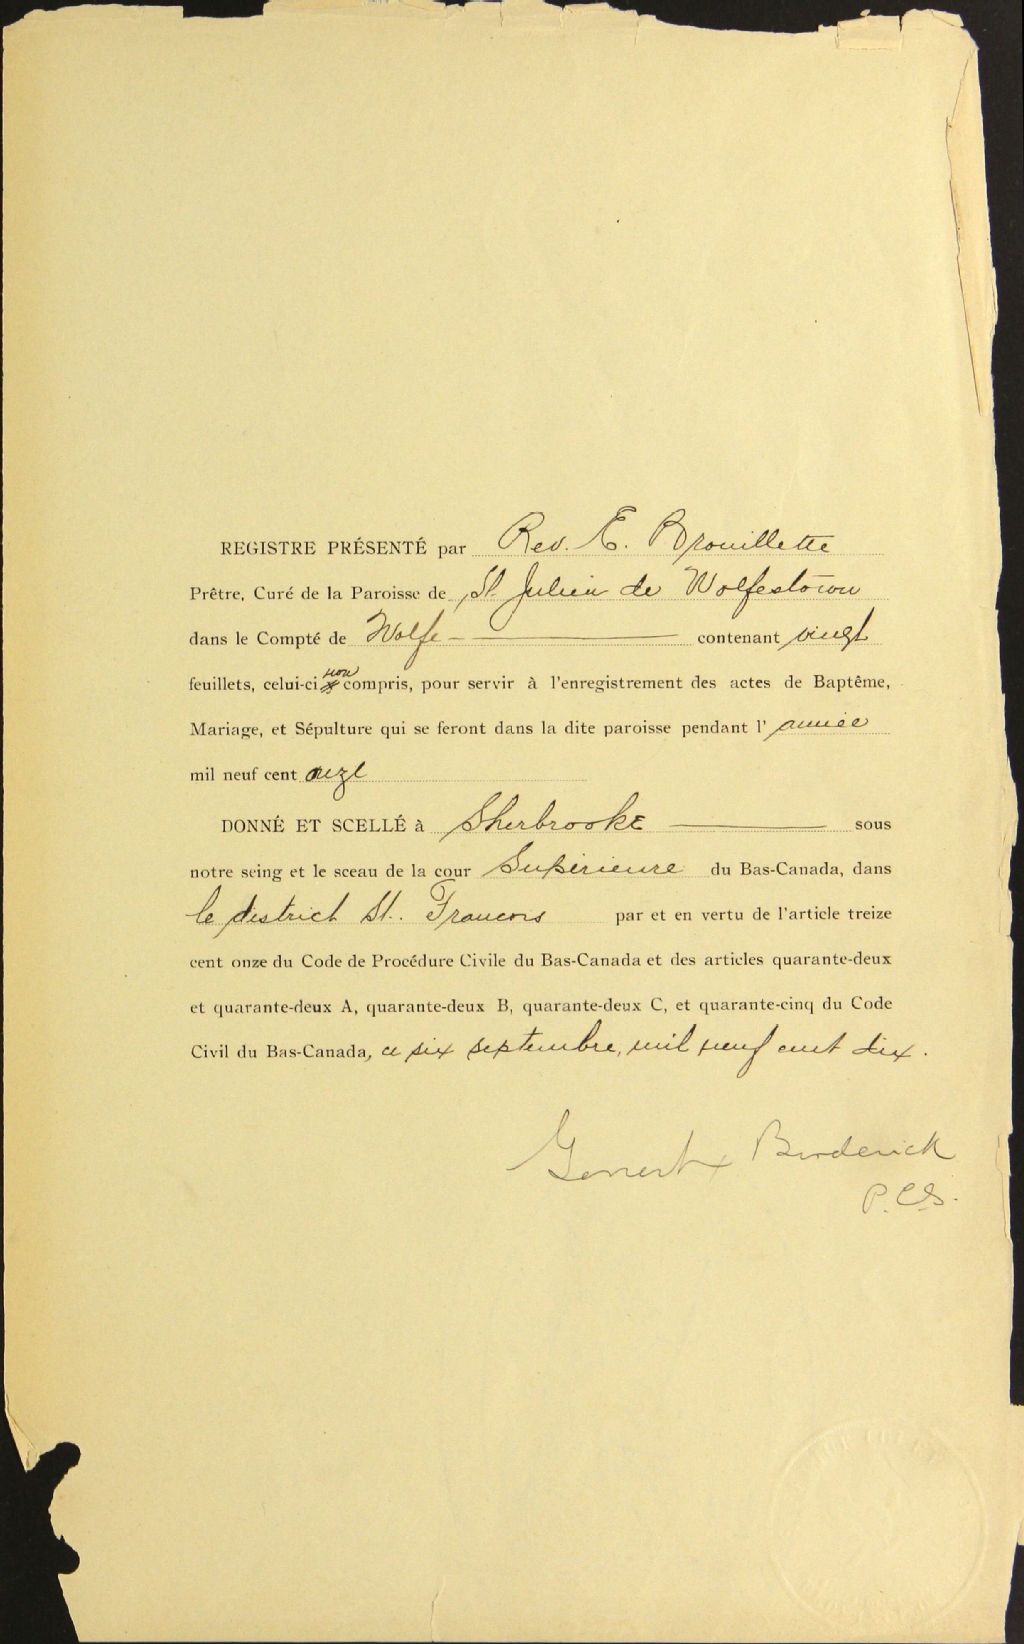 REGISTRE PRÉSENTÉ par Rev. E. Brouillette
Prêtre, Curé de la Paroisse de St. Julien de Wolfestown
dans le Compté de Wolfe — contenant vingt
feuillets, celui-ci non compris, pour servir à l'enregistrement des actes de Baptême,
Mariage, et Sépulture qui se feront dans la dite paroisse pendant l' année
mil neuf cent onze
DONNÉ ET SCELLÉ à Sherbrooke — sous
notre seing et le sceau de la cour Supérieure du Bas-Canada, dans
le district St. Francois par et en vertu de l'article treize
cent onze du Code de Procédure Civile du Bas-Canada et des articles quarante-deux
et quarante-deux A, quarante-deux B, quarante-deux C, et quarante-cinq du Code
Civil du Bas-Canada, ce six septembre, mil neuf cent dix.
Broderick
P.C.S.